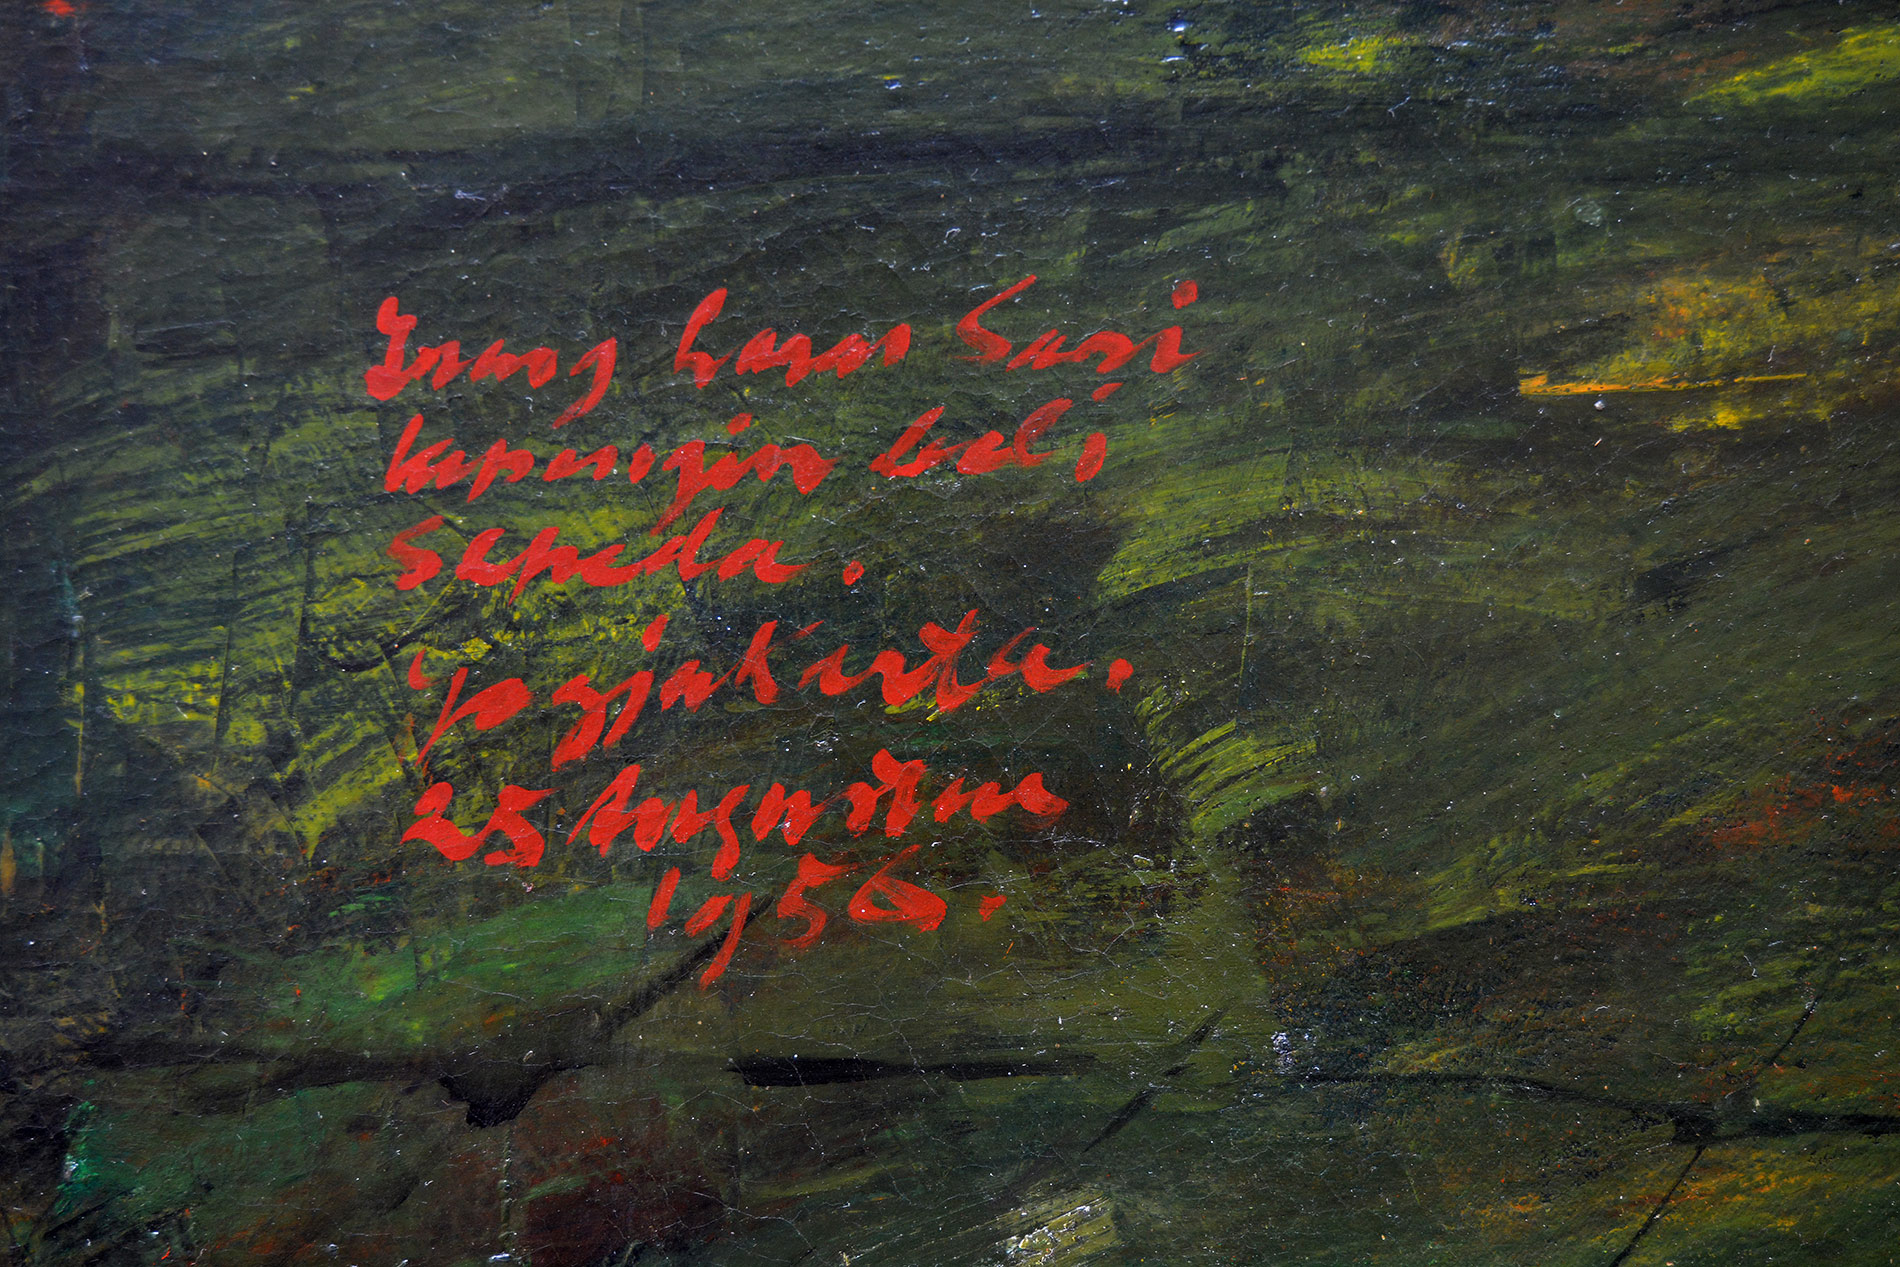 Enang Laras Sari
kepengin beli
sepeda.
'jogjakarta.
25 Augustus
1956.